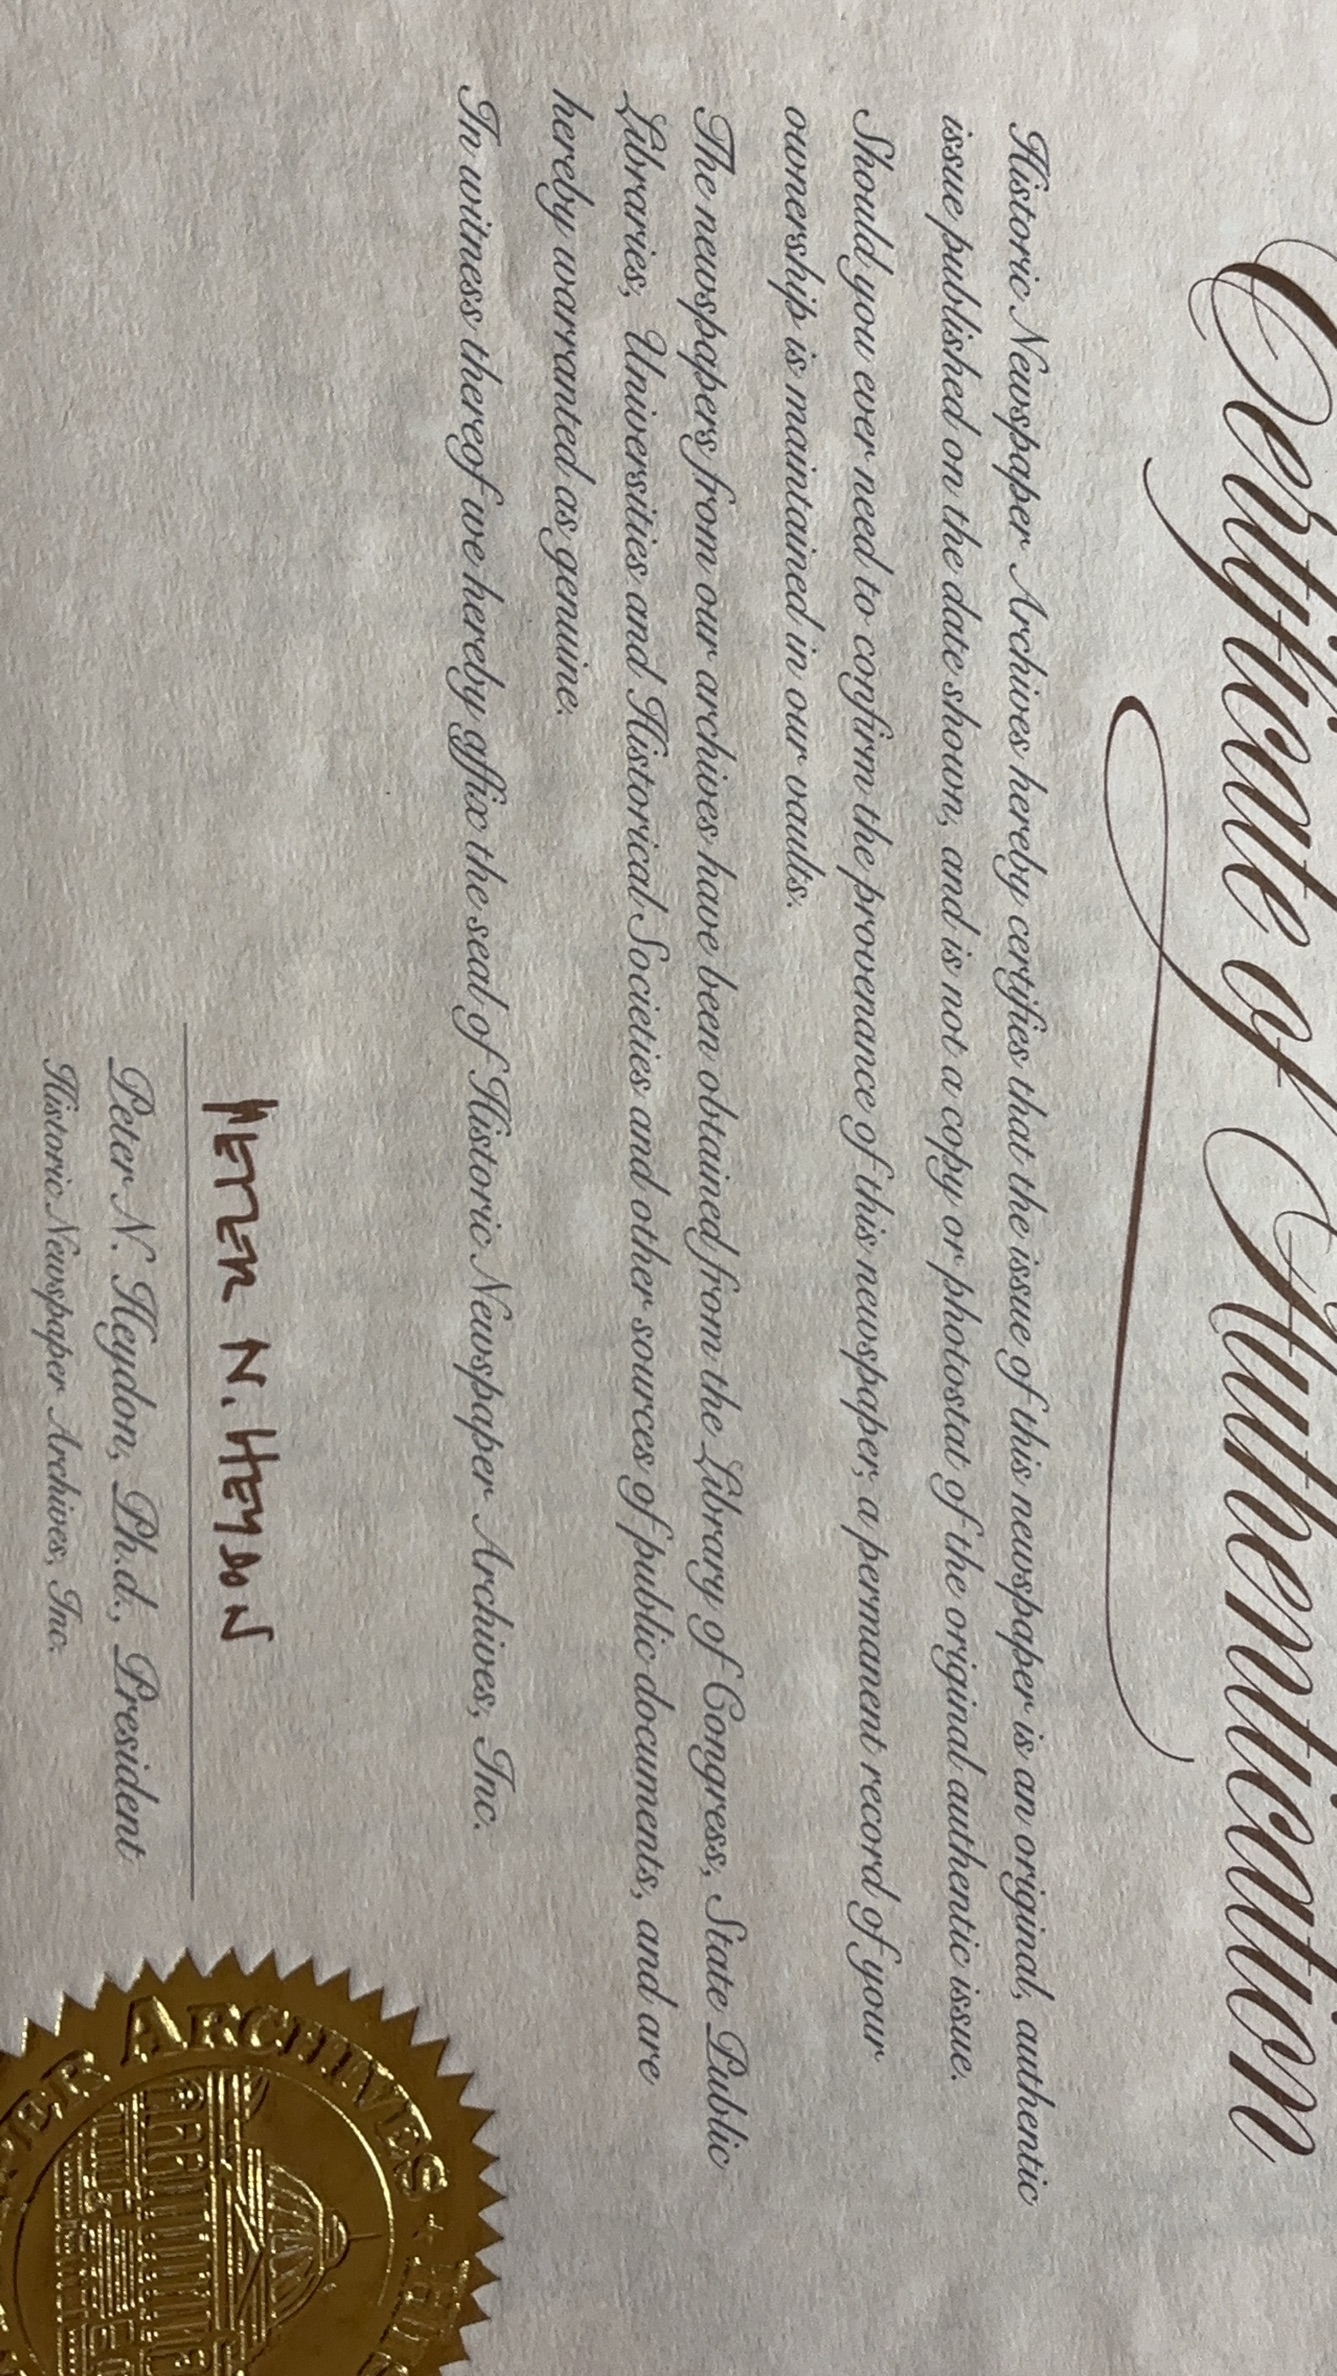 Certificate of Authentication
Historic Newspaper Archives hereby certifies that the issue of this newspaper is an original, authentic
issue published on the date shown, and is not a copy or photostat of the original authentic issue.
Should you ever need to confirm the provenance of this newspaper, a permanent record of your
ownership is maintained in our vaults.
The newspapers from our archives have been obtained from the Library of Congress, State Public
Libraries, Universities and Historical Societies and other sources of public documents, and are
hereby warranted as genuine.
In witness thereof we hereby affix the seal of Historic Newspaper Archives, Inc.
N. HEYDON
Peter N. Heydon, Ph.d., President
Historic Newspaper Archives, Inc.
ARCHIVES